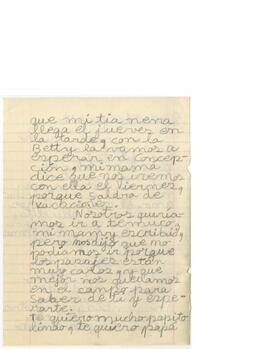 que mi tia nena
llega el jueves en
la tarde, con la
Betty la vamos a
esperar en Concep-
ción, mi mama
dice que nos iremos
con ella el Viernes,
porque saldra de
Vacaciones.
Nosotros queria-
mos ir a temuco,
mi mamy escribió,
pero nos dijo que no
podiamos ir porque
los pasajes están
muy carlos, y que
mejor nos quedamos
en el campo para
saber de ti y espe-
rarte.
te quiero mucho papito
lindo, te quiero papá